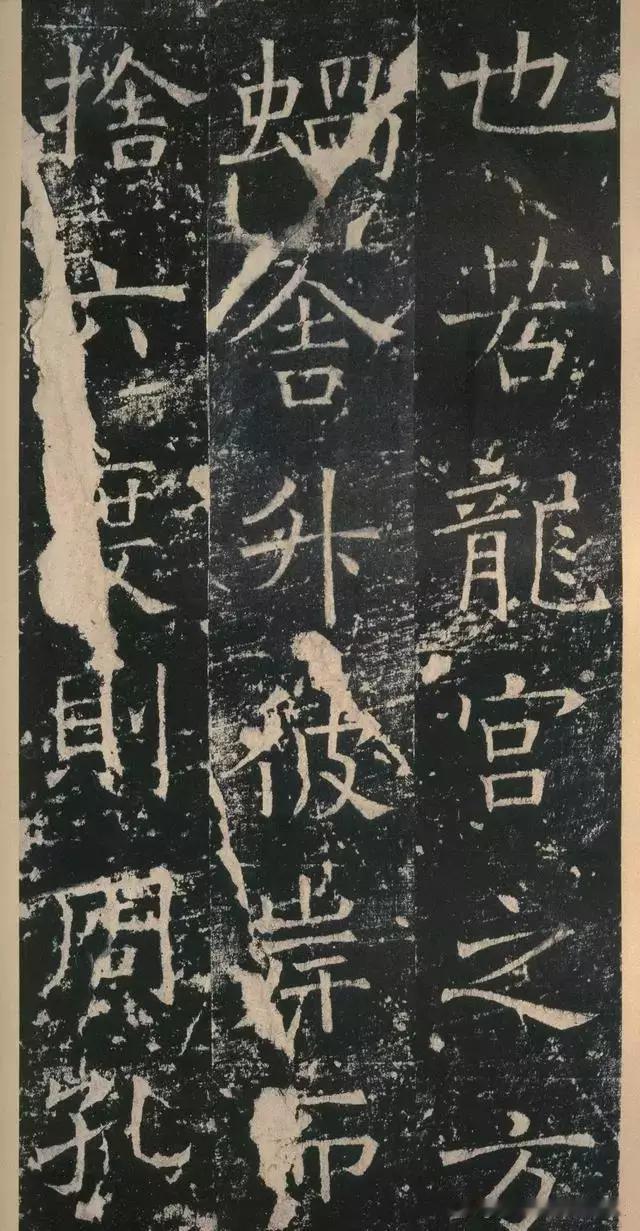 也若龍宮之方
蝸舍升彼岸而
捨六度則周孔